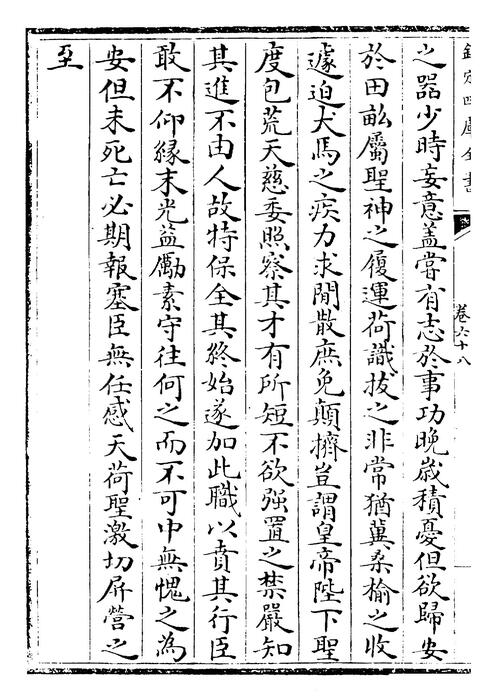 欽定四庫全書
卷六十八
之器少時妄意盖嘗有志於事功晩歲積憂但欲歸安
於田畝屬聖神之履運荷識拔之非常猶冀桑榆之收
遽迫犬馬之疾力求閒散庶免顛擠豈謂皇帝陛下聖
度包荒天慈委照察其才有所短不欲强置之禁嚴知
其進不由人故特保全其終始遂加此職以賁其行臣
敢不仰緣末光益勵素守往何之而不可中無愧之為
安但未死亡必期報塞臣無任感天荷聖激切屏營之
至